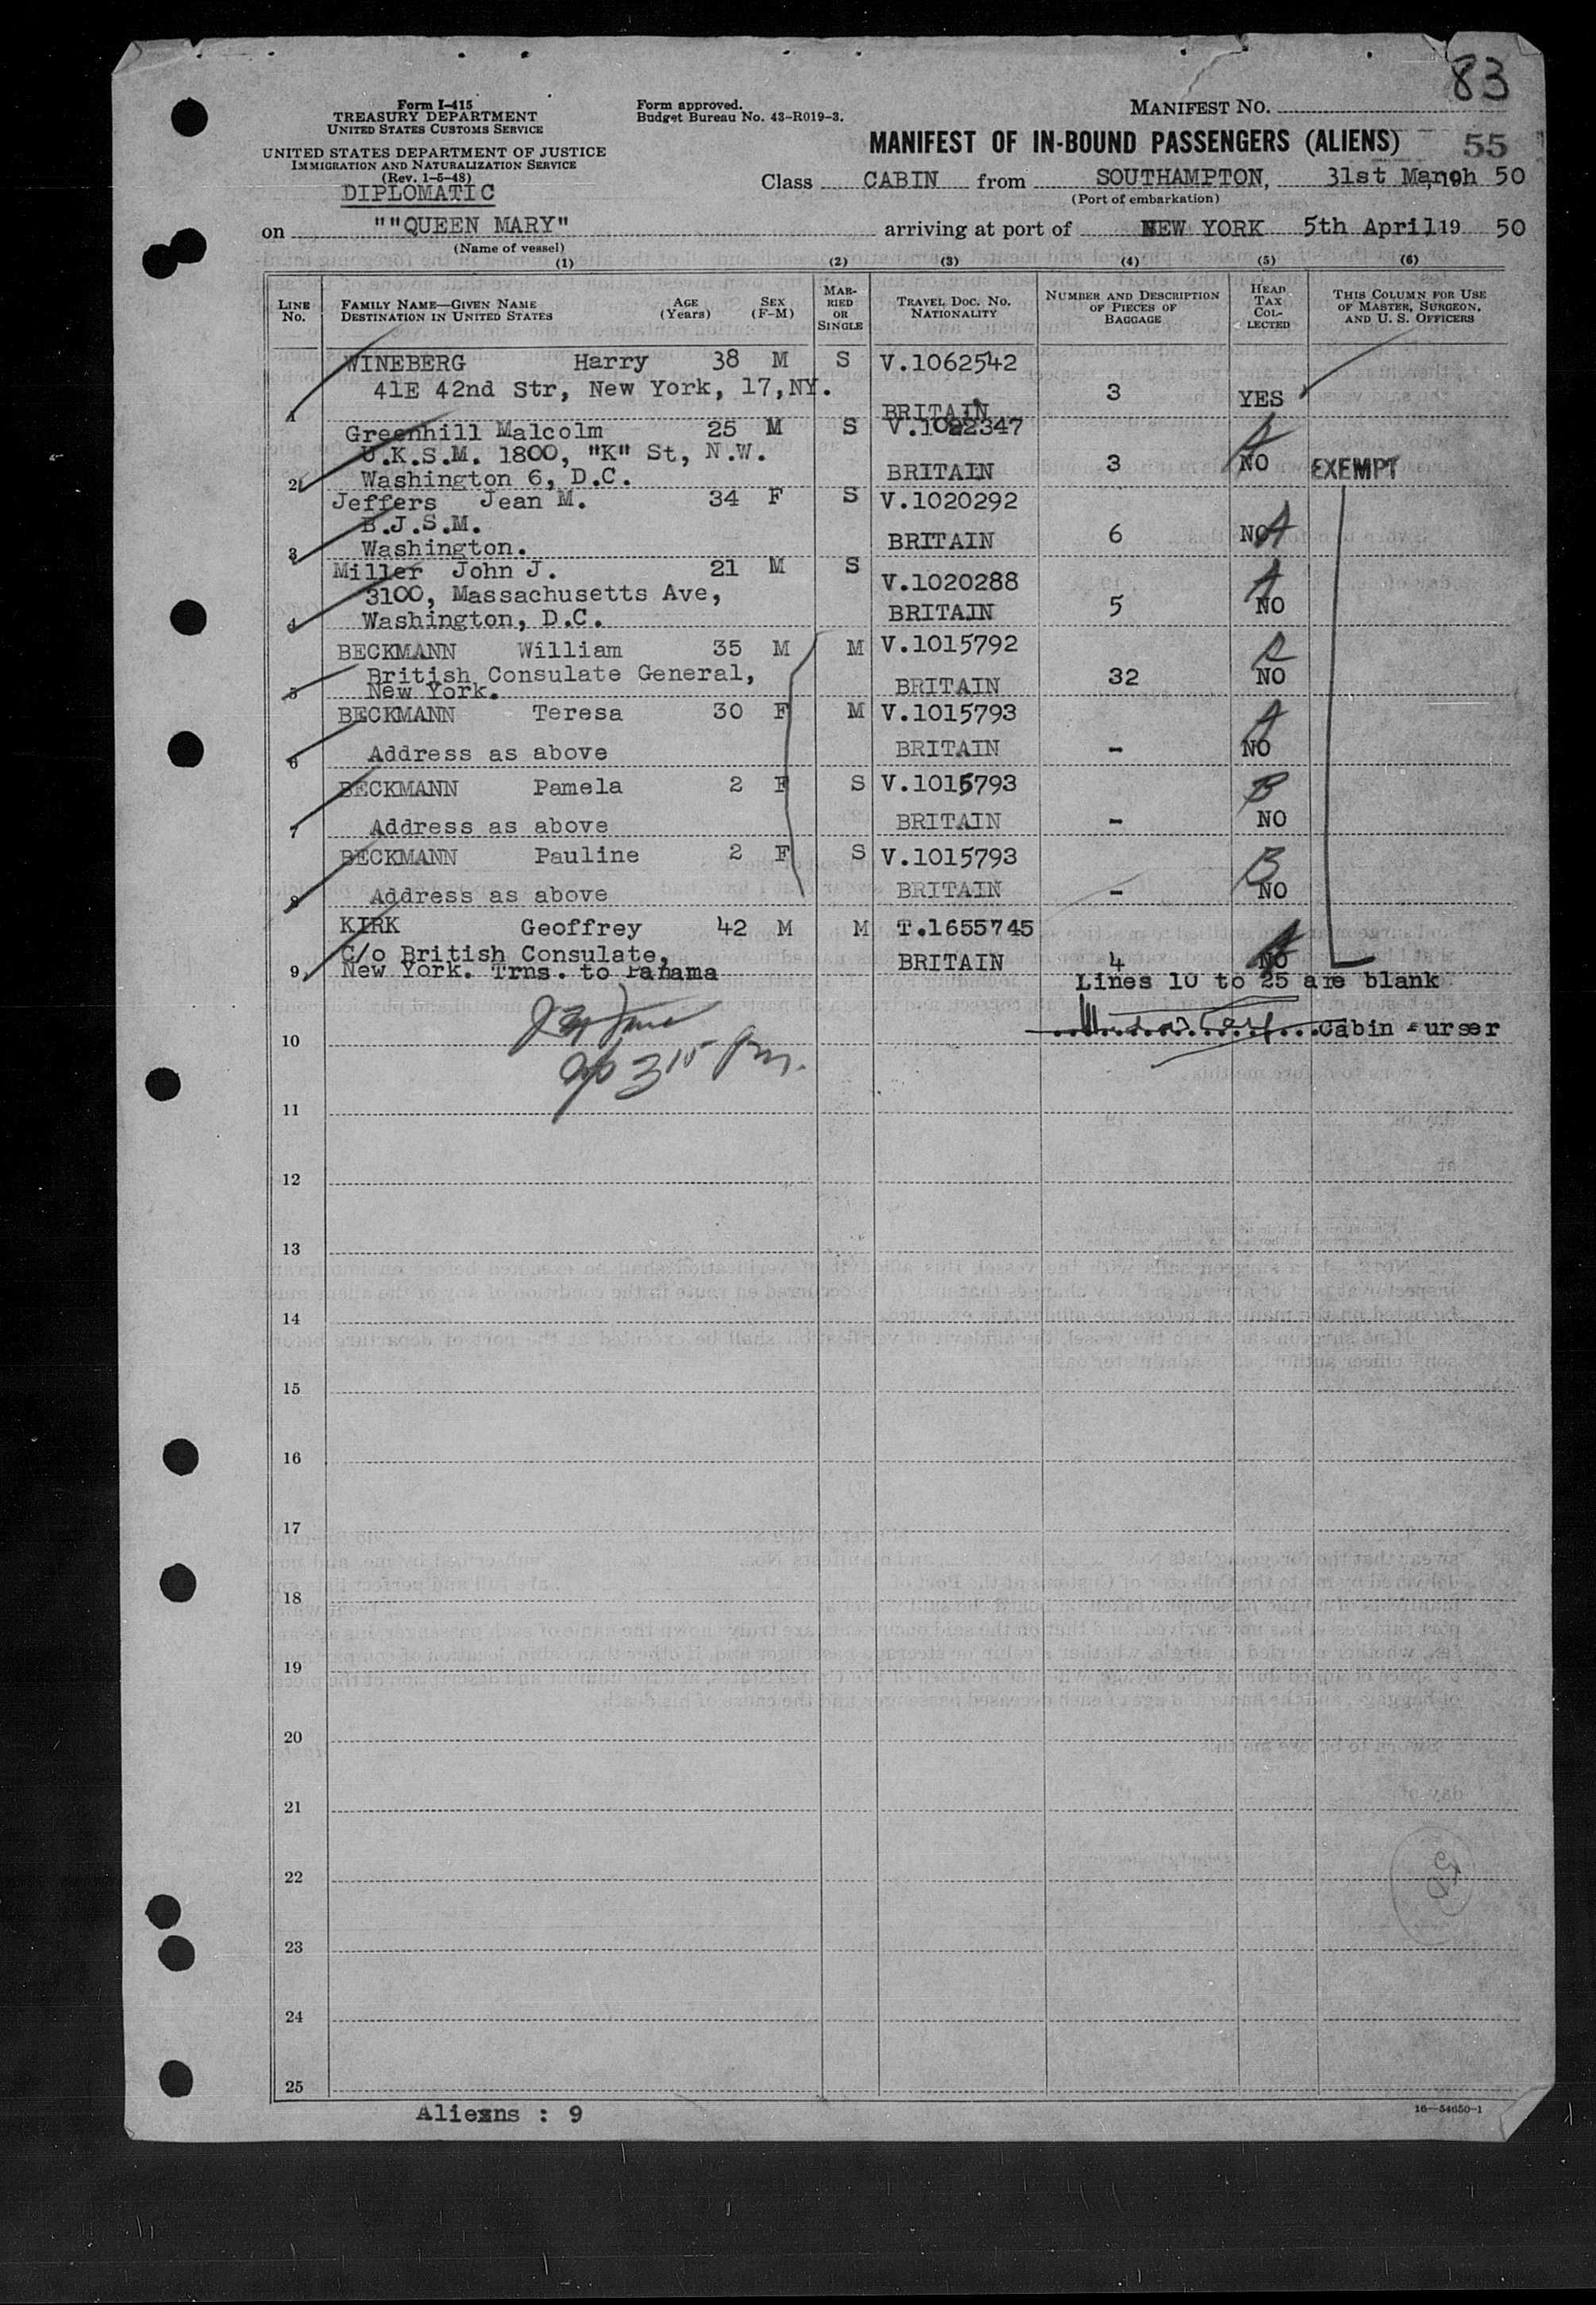 83
Form I-415
TREASURY DEPARTMENT
UNITED STATES CUSTOMS SERVICE
UNITED STATES DEPARTMENT OF JUSTICE
IMMIGRATION AND NATURALIZATION SERVICE
(Rev. 1-5-48)
DIPLOMATIC
Form approved.
Budget Bureau No. 43-R019-3.
MANIFEST NO.
MANIFEST OF IN-BOUND PASSENGERS (ALIENS) 55
Class CABIN from SOUTHAMPTON, 31st March 50
(Port of embarkation)
on ""QUEEN MARY" arriving at port of NEW YORK 5th April 19 50
(Name of vessel)
(1) (2) (3) (4) (5) (6)
LINE No.
FAMILY NAME—GIVEN NAME
DESTINATION IN UNITED STATES
AGE (Years)
SEX (F-M)
MARRIED OR SINGLE
TRAVEL DOC. NO.
NATIONALITY
NUMBER AND DESCRIPTION OF PIECES OF BAGGAGE
HEAD TAX COLLECTED
THIS COLUMN FOR USE OF MASTER, SURGEON, AND U. S. OFFICERS
WINEBERG Harry 38 M S V.1062542
41E 42nd Str, New York, 17,NY. 3 YES
1 BRITAIN
Greenhill Malcolm 25 M S V.1022347
U.K.S.M. 1800, "K" St, N.W. 3 NO EXEMPT
2 Washington 6, D.C. BRITAIN
Jeffers Jean M. 34 F S V.1020292
B.J.S.M. 6 NO A
3 Washington. BRITAIN
Miller John J. 21 M S V.1020288
3100, Massachusetts Ave, A
4 Washington, D.C. BRITAIN 5 NO
BECKMANN William 35 M M V.1015792
British Consulate General, 32 NO
5 New York. BRITAIN
BECKMANN Teresa 30 F M V.1015793
A
6 Address as above BRITAIN - NO
BECKMANN Pamela 2 F S V.1015793
B
7 Address as above BRITAIN - NO
BECKMANN Pauline 2 F S V.1015793
B
8 Address as above BRITAIN - NO
KIRK Geoffrey 42 M M T.1655745
C/o British Consulate, BRITAIN 4 NO
9 New York. Trns. to Panama
Lines 10 to 25 are blank
Cabin urser
10
315 pm.
11
12
13
14
15
16
17
18
19
20
21
22
23
24
25
Aliexns : 9
16—54650-1